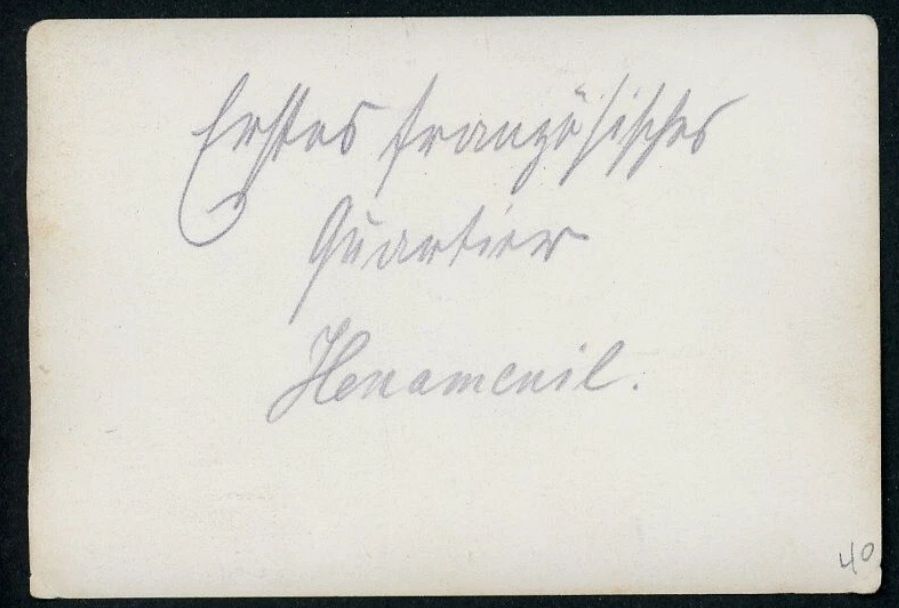 Erstes französisches
Quartier
Henamenil.
40